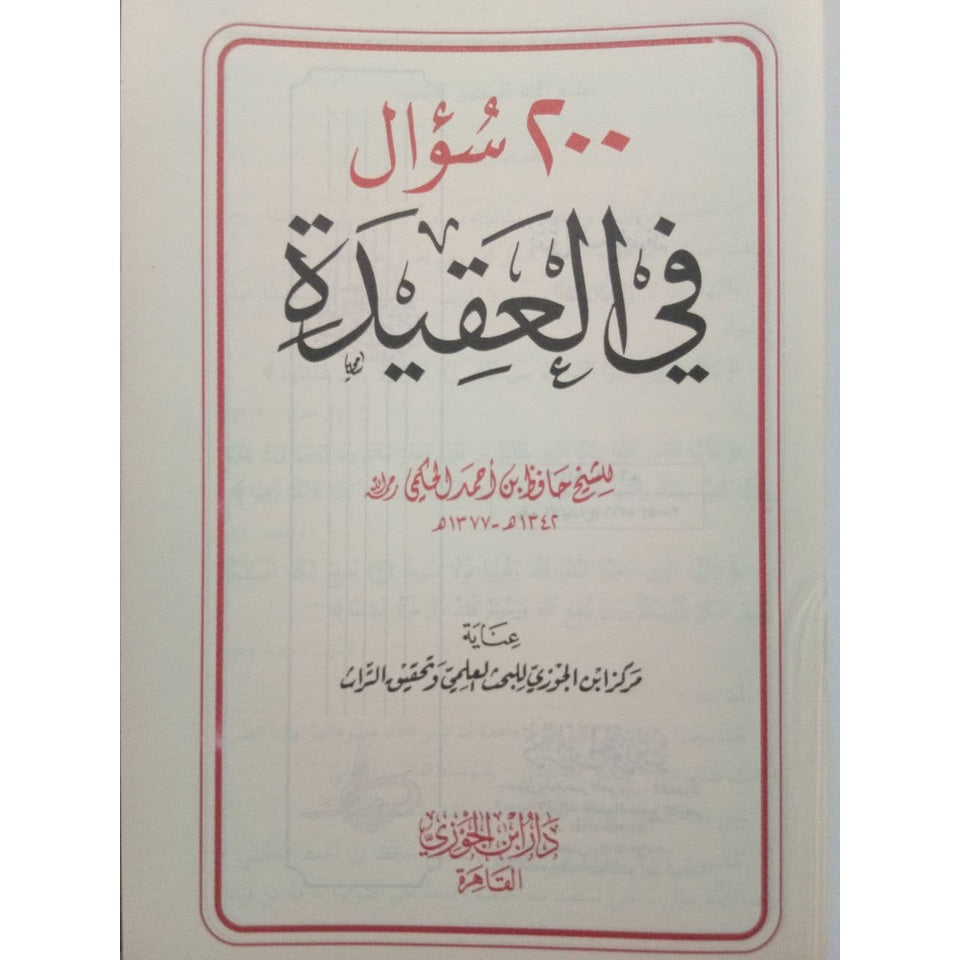 ٢٠٠ سُؤال
في العَقِيدَةِ
للشيخ حافظ بن أحمد الحكمي رحمه الله
١٣٤٢هـ - ١٣٧٧هـ
عناية
مركز ابن الجوزي للبحث العلمي وتحقيق التراث
دار ابن الجوزي
القاهرة